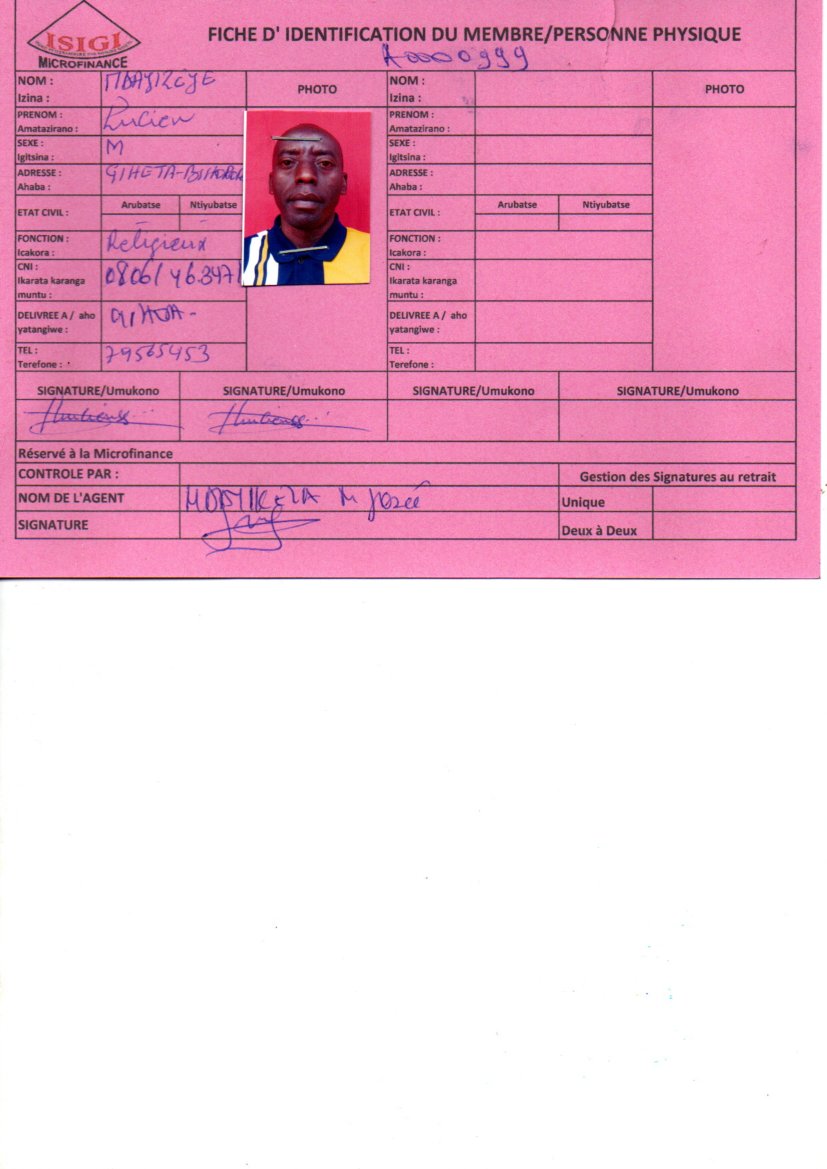 ISIGI
MICROFINANCE
FICHE D' IDENTIFICATION DU MEMBRE/PERSONNE PHYSIQUE
A0000999
NOM :
Izina :
PHOTO
NOM :
Izina :
PHOTO
PRENOM :
Amatazirano :
Lucien
PRENOM :
Amatazirano :
SEXE :
Igitsina :
M
SEXE :
Igitsina :
ADRESSE :
Ahaba :
GIHETA-
ADRESSE :
Ahaba :
ETAT CIVIL :
Arubatse
Ntiyubatse
ETAT CIVIL :
Arubatse
Ntiyubatse
FONCTION :
Icakora :
Religieux
FONCTION :
Icakora :
CNI :
Ikarata karanga
muntu :
CNI :
Ikarata karanga
muntu :
DELIVREE A / aho
yatangiwe :
DELIVREE A / aho
yatangiwe :
TEL :
Terefone :
79565453
TEL :
Terefone :
SIGNATURE/Umukono
SIGNATURE/Umukono
SIGNATURE/Umukono
SIGNATURE/Umukono
Réservé à la Microfinance
CONTROLE PAR :
Gestion des Signatures au retrait
NOM DE L'AGENT
M Josée
Unique
SIGNATURE
Deux à Deux